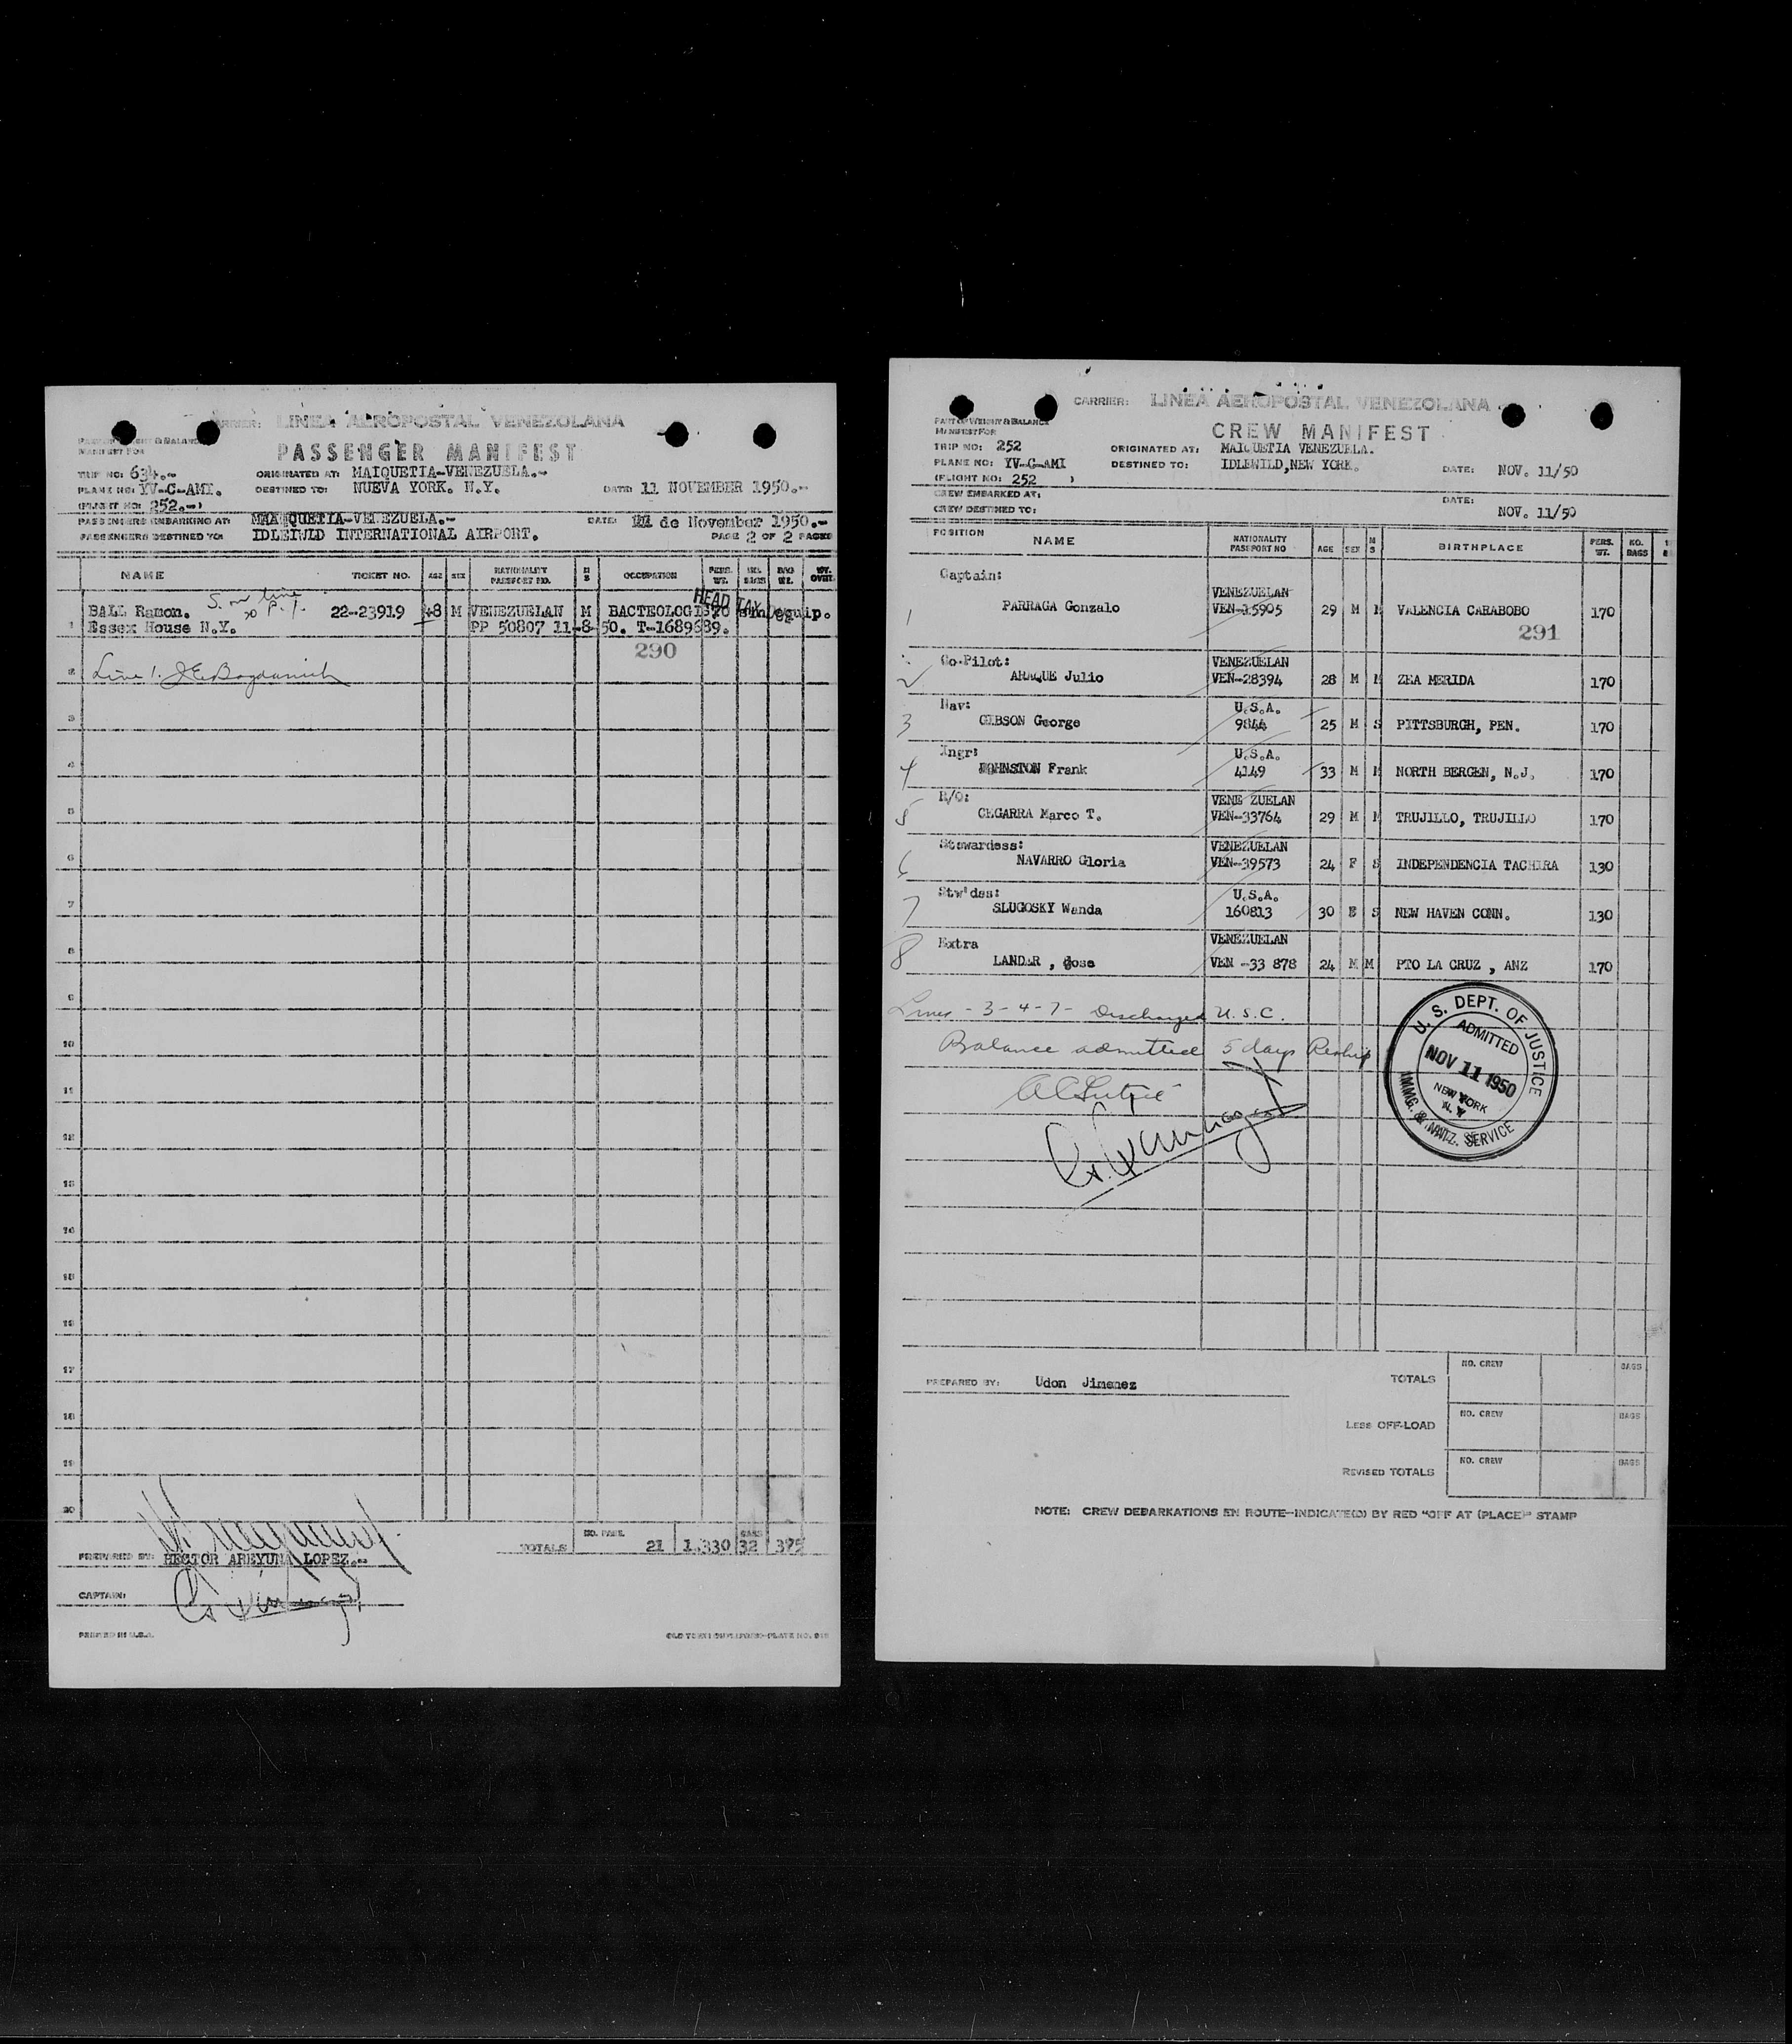 CARRIER: LINEA AEROPOSTAL VENEZOLANA
PASSENGER MANIFEST
MANIFEST FOR
TRIP NO: 634.- ORIGINATED AT: MAIQUETIA-VENEZUELA.-
PLANE NO: YV-C-AMI. DESTINED TO: NUEVA YORK. N.Y. DATE: 11 NOVEMBER 1950.-
(FLIGHT NO: 252.-)
PASSENGERS EMBARKING AT: MAIQUETIA-VENEZUELA.- DATE: 11 de November 1950.-
PASSENGERS DESTINED TO: IDLEIWLD INTERNATIONAL AIRPORT. PAGE 2 OF 2 PAGES
NAME TICKET NO. AGE SEX NATIONALITY PASSPORT NO. M S OCCUPATION PERS. WT. NO. BAGS BAG WT. WT. OVER.
HEAD TAX
BALL Ramon. 22-23919 48 M VENEZUELAN M BACTEOLOGIS 170 sin equip.
1 Essex House N.Y. PP 50807 11-8-50. T-1689689.
290
2 Line 1. J E Bogdanich
3
4
5
6
7
8
9
10
11
12
13
14
15
16
17
18
19
20
TOTALS NO. PASS. 21 1.330 BAGS 32 375
PREPARED BY: HECTOR AREYUNA LOPEZ.-
CAPTAIN:
PRINTED IN U.S.A.
CARRIER: LINEA AEROPOSTAL VENEZOLANA
PART OF WEIGHT & BALANCE
MANIFEST FOR
CREW MANIFEST
TRIP NO: 252 ORIGINATED AT: MAIQUETIA VENEZUELA.
PLANE NO: YV-C-AMI DESTINED TO: IDLEWILD, NEW YORK. DATE: NOV. 11/50
(FLIGHT NO: 252 )
CREW EMBARKED AT: DATE:
CREW DESTINED TO: NOV. 11/50
POSITION NAME NATIONALITY PASSPORT NO AGE SEX M S BIRTHPLACE PERS. WT. NO. BAGS
Captain: VENEZUELAN
1 PARRAGA Gonzalo VEN-15905 29 M M VALENCIA CARABOBO 170
291
Co-Pilot: VENEZUELAN
2 ARAQUE Julio VEN-28394 28 M M ZEA MERIDA 170
Nav: U.S.A.
3 GIBSON George 9844 25 M S PITTSBURGH, PEN. 170
Ingr: U.S.A.
4 JOHNSTON Frank 4149 33 M M NORTH BERGEN, N.J. 170
R/O: VENE ZUELAN
5 CEGARRA Marco T. VEN-33764 29 M M TRUJILLO, TRUJILLO 170
Stewardess: VENEZUELAN
6 NAVARRO Gloria VEN-39573 24 F S INDEPENDENCIA TACHIRA 130
Stw'dss: U.S.A.
7 SLUGOSKY Wanda 160813 30 F S NEW HAVEN CONN. 130
Extra VENEZUELAN
8 LANDER , Jose VEN -33 878 24 M M PTO LA CRUZ , ANZ 170
Lines - 3-4-7- Discharged U.S.C.
Balance admitted 5 days Reship
U. S. DEPT. OF JUSTICE
ADMITTED
NOV 11 1950
NEW YORK
N. Y
IMMG. & NATZ. SERVICE
PREPARED BY: Udon Jimenez
TOTALS NO. CREW BAGS
LESS OFF-LOAD NO. CREW BAGS
REVISED TOTALS NO. CREW BAGS
NOTE: CREW DEBARKATIONS EN ROUTE-INDICATE(D) BY RED "OFF AT (PLACE)" STAMP